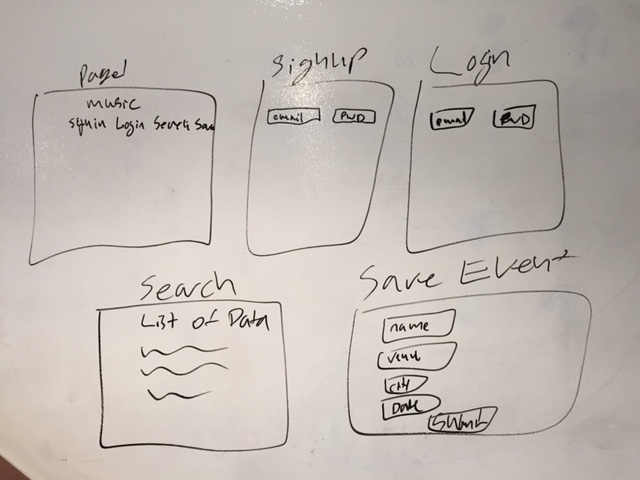 Page1
music
Signin Login Search Save
SignUp
email PWD
Login
email PWD
Search
List of Data
Save Event
name
venu
city
Date
Submit